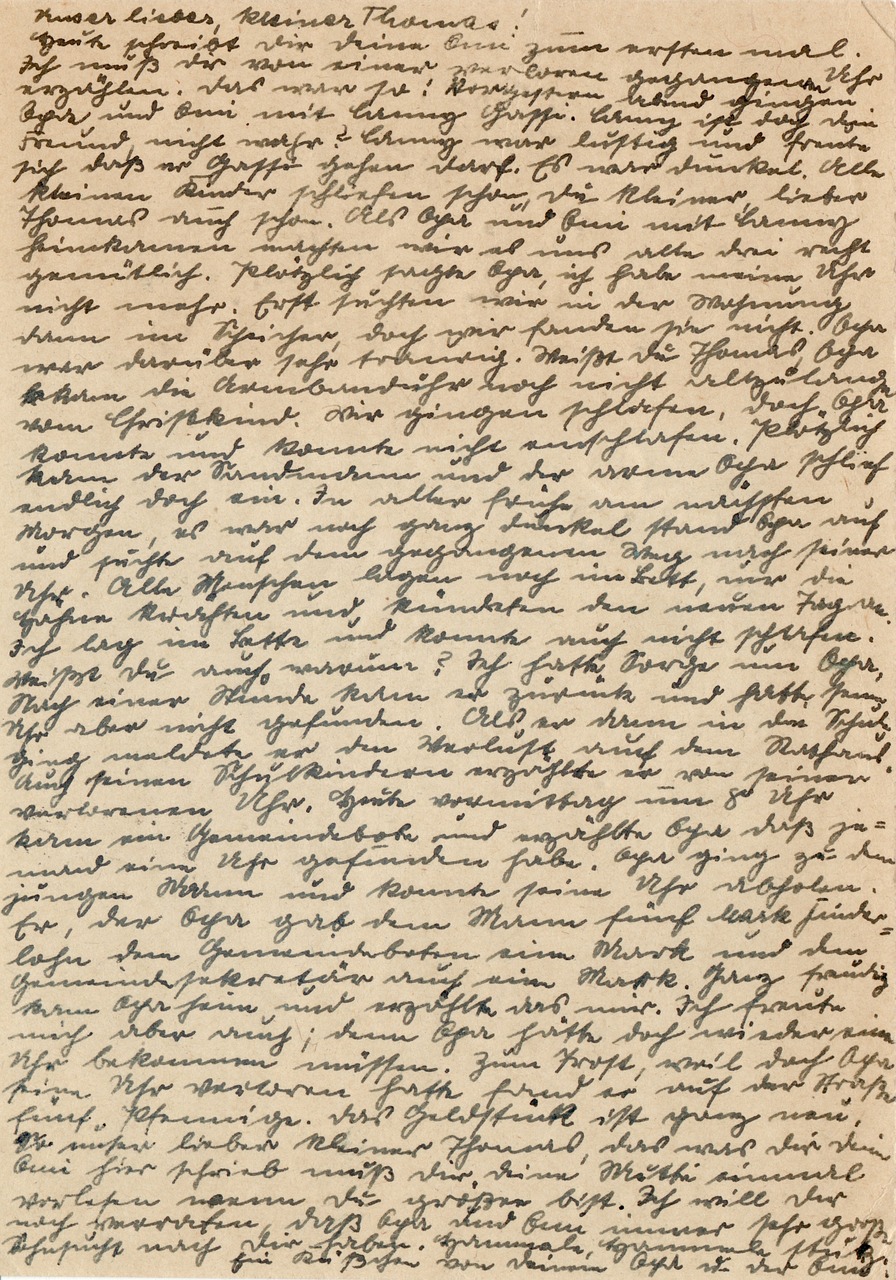 Unser lieber, kleiner Thomas!
Heute schreibt dir deine Omi zum ersten mal.
Ich muß dir von einer verloren gegangenen Uhr
erzählen. Das war so! Vorgestern abend gingen
Opa und Omi mit Lanny Gassi. Lanny ist doch dein
Freund, nicht wahr? Lanny war lustig und freute
sich daß er Gassi gehen darf. Es war dunkel. Alle
kleinen Kinder schliefen schon, du kleiner, lieber
Thomas auch schon. Als Opa und Omi mit Lanny
heimkamen machten wir es uns alle drei recht
gemütlich. Plötzlich sagte Opa, ich habe meine Uhr
nicht mehr. Erst suchten wir in der Wohnung
dann im Speicher, doch wir fanden sie nicht. Opa
war darüber sehr traurig. Weißt du Thomas, Opa
bekam die Armbanduhr noch nicht allzulange
vom Christkind. Wir gingen schlafen, doch Opa
konnte und konnte nicht einschlafen. Plötzlich
kam der Sandmann und der arme Opa schlief
endlich doch ein. In aller frühe am nächsten
Morgen, es war noch ganz dunkel stand Opa auf
und suchte auf dem gegangenen Weg nach seiner
Uhr. Alle Menschen lagen noch im Bett, nur die
Hähne krähten und kündeten den neuen Tag an.
Ich lag im Bette und konnte auch nicht schlafen.
Weißt du auch warum? Ich hatte Sorge um Opa.
Nach einer Stunde kam er zurück und hatte seine
Uhr aber nicht gefunden. Als er dann in die Schule
ging meldete er den Verlust auf dem Rathaus.
Auch seinen Schulkindern erzählte er von seiner
verlorenen Uhr. Heute vormittag um 8°° Uhr
kam ein Gemeindebote und erzählte Opa daß je=
mand eine Uhr gefunden habe. Opa ging zu dem
jungen Mann und konnte seine Uhr abholen.
Er, der Opa gab dem Mann fünf Mark Finder=
lohn dem Gemeindeboten eine Mark und dem
Gemeindesekretär auch eine Mark. Ganz freudig
kam Opa heim und erzählte das mir. Ich freute
mich aber auch; denn Opa hätte doch wieder eine
Uhr bekommen müssen. Zum Trost, weil doch Opa
seine Uhr verloren hatte fand er auf der Straße
fünf Pfennige. Das Geldstück ist ganz neu.
So unser lieber kleiner Thomas, das was dir dein
Omi hier schrieb muß dir deine Mutti einmal
vorlesen wenn du größer bist. Ich will dir
noch verraten, daß Opa und Omi immer sehr große
Sehnsucht nach dir haben.
Ein Küßchen von deinem Opa u. der Omi.